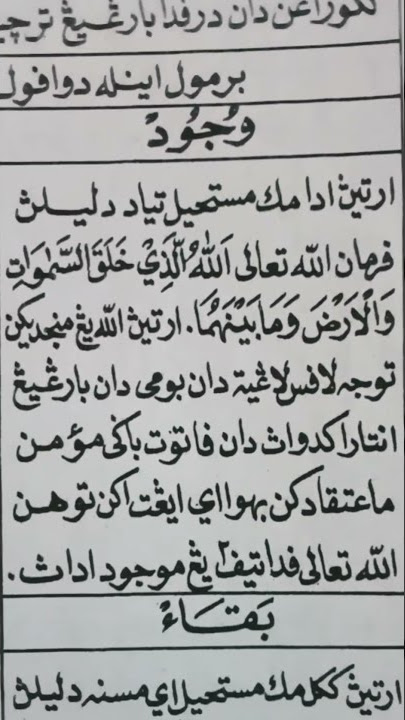 دان درفدا بارڠيڠ
برمول اينله دوافول
وُجُودْ
ارتين ادا مك مستحيل تياد دليلن
فرمان الله تعالى اَللهُ الَّذِيْ خَلَقَ السَّمٰوَاتِ
وَالْاَرْضَ وَمَا بَيْنَهُمَا. ارتين الله يڠ منجديكن
توجه لافس لاڠية دان بومى دان بارڠيڠ
انتارا كدوان دان فاتوت باكى مؤمن
ماعتقادكن بهوا اي ايڠت اكن توهن
الله تعالى فدا تيف٢ يڠ موجود ادان.
بَقَاءْ
ارتين ككل مك مستحيل اي مسنه دليلن